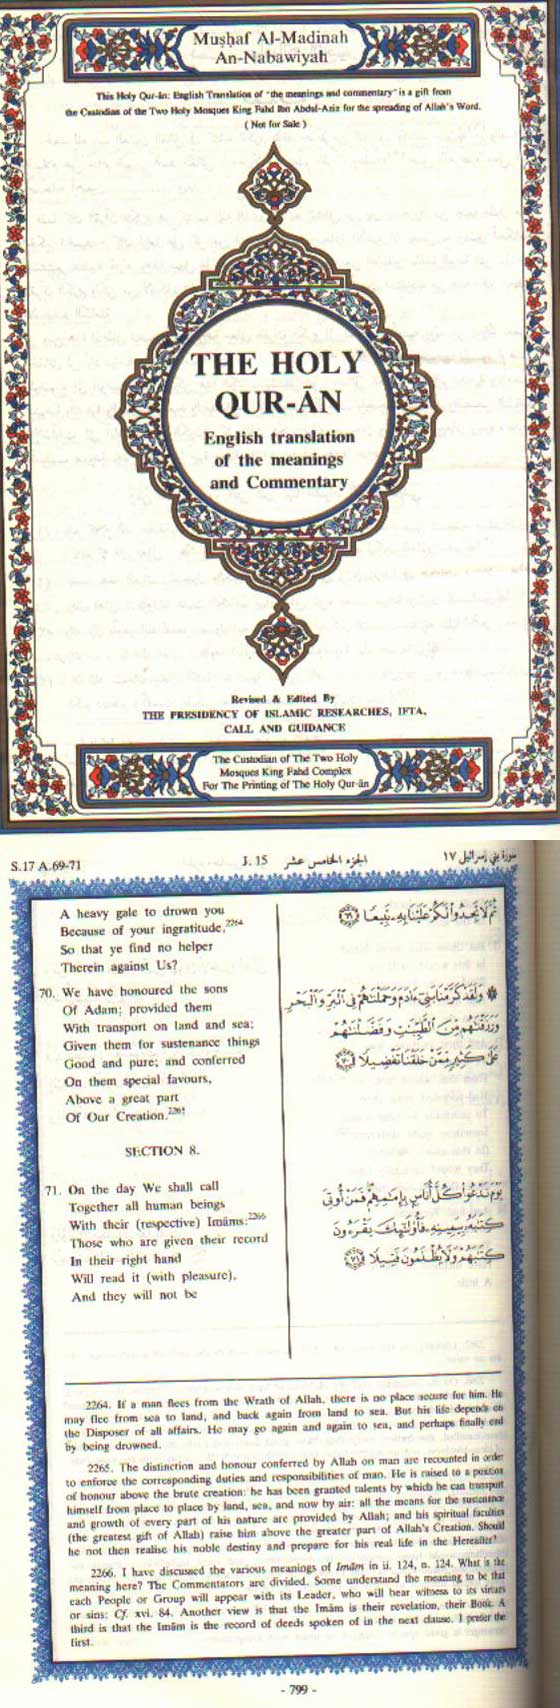 Muṣḥaf Al-Madinah
An-Nabawiyah
This Holy Qur-ān: English Translation of "the meanings and commentary" is a gift from
the Custodian of the Two Holy Mosques King Fahd Ibn Abdul-Aziz for the spreading of Allah's Word.
( Not for Sale )
THE HOLY
QUR-ĀN
English translation
of the meanings
and Commentary
Revised & Edited By
THE PRESIDENCY OF ISLAMIC RESEARCHES, IFTA,
CALL AND GUIDANCE
The Custodian of The Two Holy
Mosques King Fahd Complex
For The Printing of The Holy Qur-ān
S.17 A.69-71
J. 15
الجزء الخامس عشر
سورة بني إسرائيل ١٧
A heavy gale to drown you
Because of your ingratitude,2264
So that ye find no helper
Therein against Us?
ثُمَّ لَا تَجِدُوا۟ لَكُمْ عَلَيْنَا بِهِۦ تَبِيعًا ٦٩
70. We have honoured the sons
Of Adam; provided them
With transport on land and sea;
Given them for sustenance things
Good and pure; and conferred
On them special favours,
Above a great part
Of Our Creation.2265
وَلَقَدْ كَرَّمْنَا بَنِىٓ ءَادَمَ وَحَمَلْنَٰهُمْ فِى ٱلْبَرِّ وَٱلْبَحْرِ
وَرَزَقْنَٰهُم مِّنَ ٱلطَّيِّبَٰتِ وَفَضَّلْنَٰهُمْ
عَلَىٰ كَثِيرٍ مِّمَّنْ خَلَقْنَا تَفْضِيلًا ٧٠
SECTION 8.
71. On the day We shall call
Together all human beings
With their (respective) Imāms:2266
Those who are given their record
In their right hand
Will read it (with pleasure),
And they will not be
يَوْمَ نَدْعُوا۟ كُلَّ أُنَاسٍۭ بِإِمَٰمِهِمْ فَمَنْ أُوتِىَ
كِتَٰبَهُۥ بِيَمِينِهِۦ فَأُو۟لَٰٓئِكَ يَقْرَءُونَ
كِتَٰبَهُمْ وَلَا يُظْلَمُونَ فَتِيلًا ٧١
2264. If a man flees from the Wrath of Allah, there is no place secure for him. He
may flee from sea to land, and back again from land to sea. But his life depends on
the Disposer of all affairs. He may go again and again to sea, and perhaps finally end
by being drowned.
2265. The distinction and honour conferred by Allah on man are recounted in order
to enforce the corresponding duties and responsibilities of man. He is raised to a position
of honour above the brute creation: he has been granted talents by which he can transport
himself from place to place by land, sea, and now by air: all the means for the sustenance
and growth of every part of his nature are provided by Allah; and his spiritual faculties
(the greatest gift of Allah) raise him above the greater part of Allah's Creation. Should
he not then realise his noble destiny and prepare for his real life in the Hereafter?
2266. I have discussed the various meanings of Imām in ii. 124, n. 124. What is the
meaning here? The Commentators are divided. Some understand the meaning to be that
each People or Group will appear with its Leader, who will bear witness to its virtues
or sins: Cf. xvi. 84. Another view is that the Imām is their revelation, their Book. A
third is that the Imām is the record of deeds spoken of in the next clause. I prefer the
first.
- 799 -